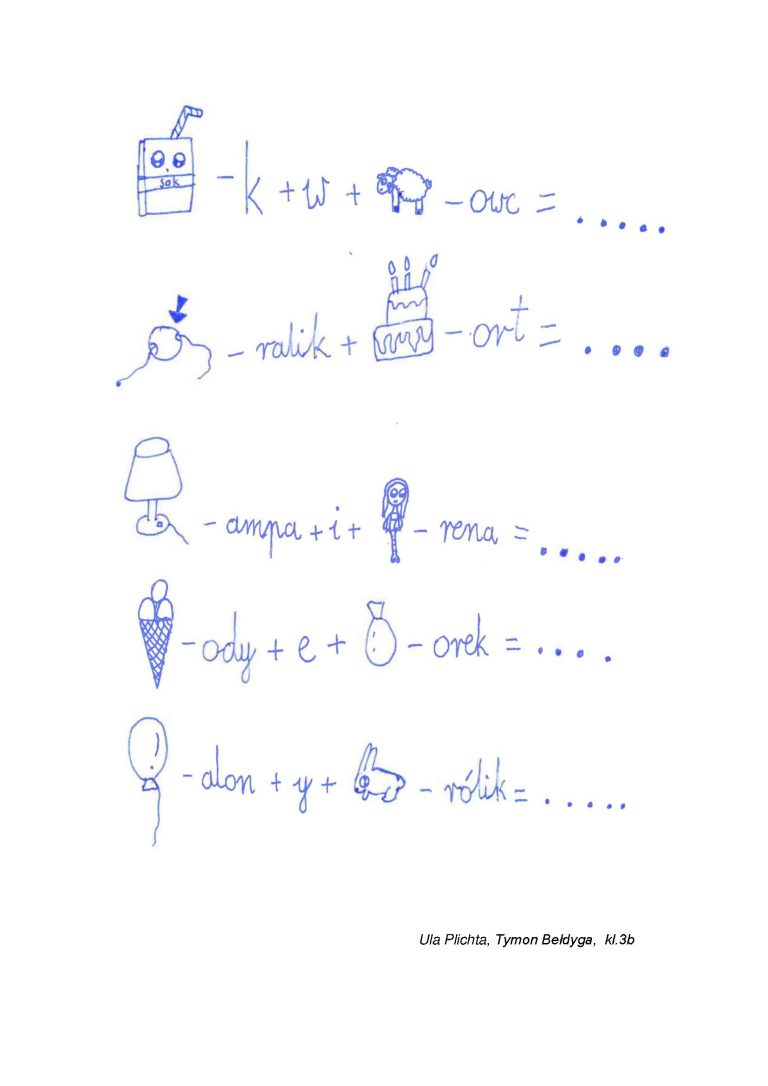 sok
- k + w + - owc = .....
- ralik + - ort = ....
- ampa + i + - rena = .....
- ody + e + - orek = ....
- alon + y + - rólik = .....
Ula Plichta, Tymon Bełdyga, kl.3b